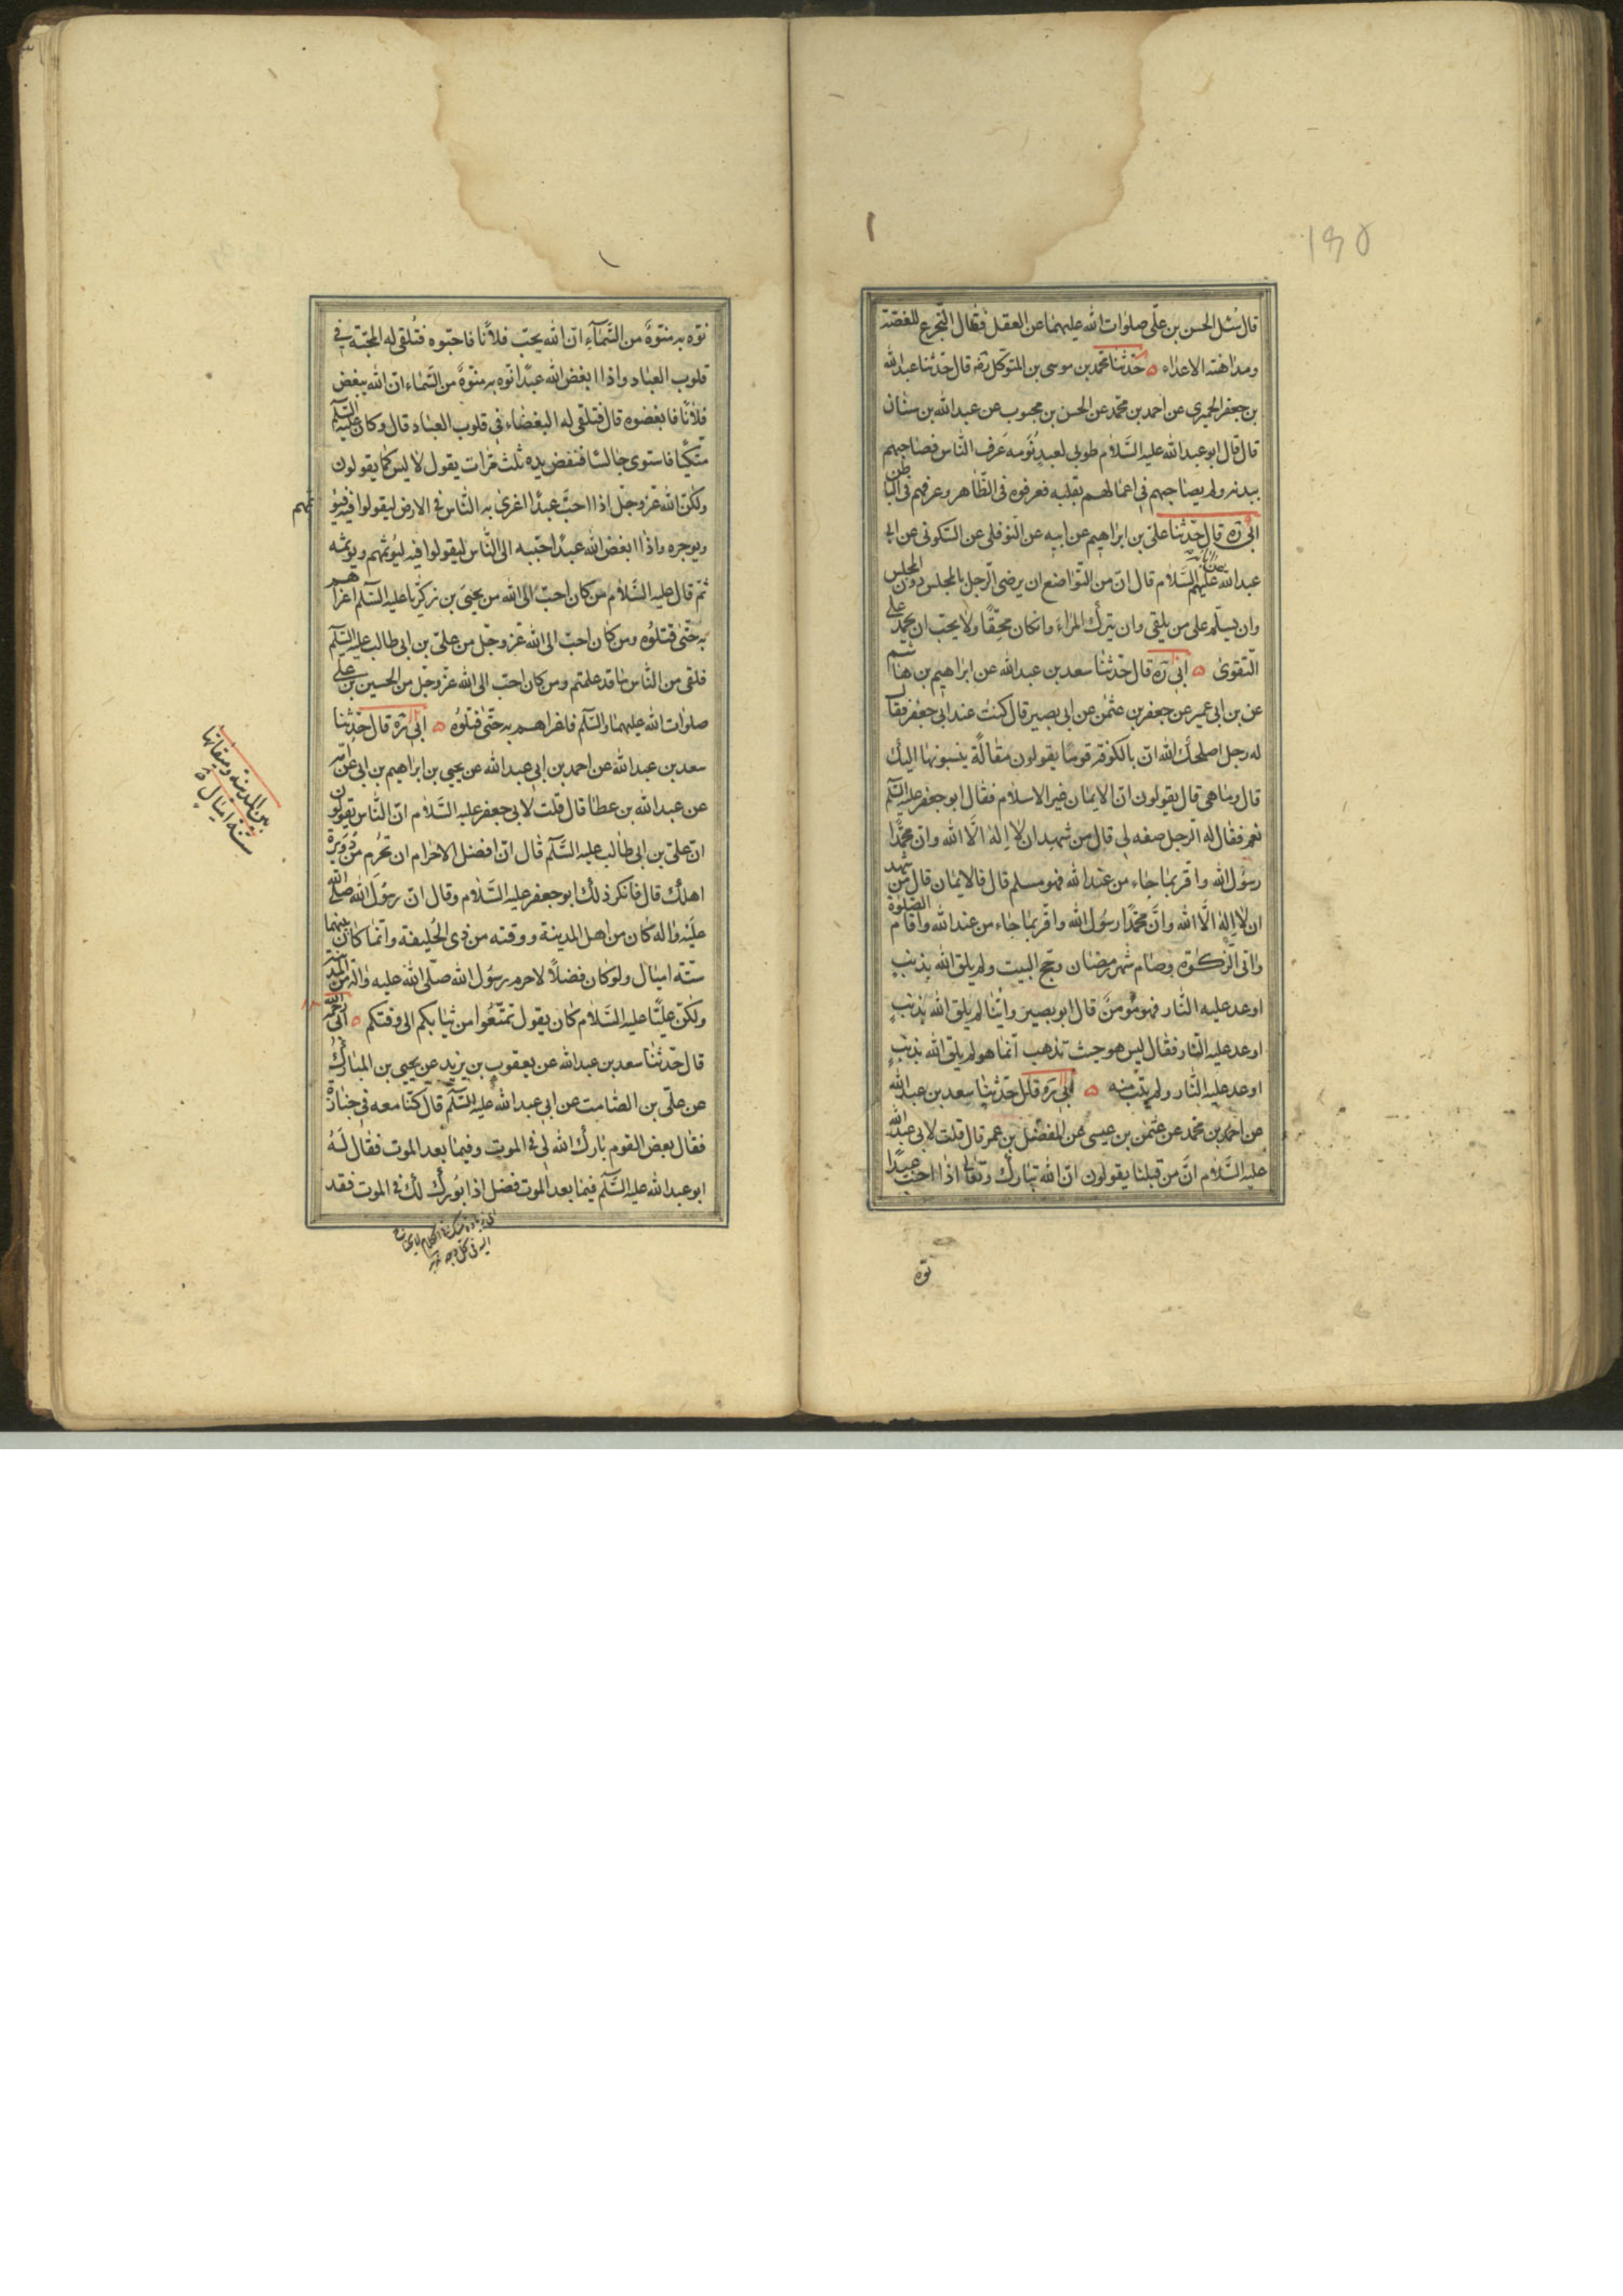 ١٩٥
قال سُئل الحسن بن علّي صلوات الله عليهما عن العقل فقال التجرع للغصّة
ومداهنة الاعداء ه حدّثنا محمد بن موسى بن المتوكل ره قال حدّثنا عبدالله
بن جعفر الحميري عن احمد بن محمّد عن الحسن بن محبوب عن عبدالله بن سنان
قال قال ابو عبدالله عليه السَّلام طوبى لعبدٍ نُوَمه عَرف النّاس فصاحبهم
ببدنه ولم يصاحبهم في اعمالهم بقلبه فعرفوه فى الظّاهر وعرفهم فى الباطن
ابى ره قال حدّثنا علّي بن ابراهيم عن ابيه عن النّوفلى عن السّكونى عن ابي
عبدالله عن ابائه عليهم السَّلام قال انّ من التّواضع ان يرضى الرّجل بالمجلس دون المجلس
وان يسلّم على من يلقى وان يترك المراء وان كان محقّا ولا يحبّ ان يحمد على
التّقوى ه ابى ره قال حدّثنا سعد بن عبدالله عن ابراهيم بن هاشم
عن بن ابى عمير عن جعفر بن عثمن عن ابى بصير قال كنت عند ابى جعفر فقال
له رجل اصلحك الله انّ بالكوفة قومًا يقولون مقالةً ينسبونها اليك
قال وما هى قال يقولون انّ الايمان غير الاسلام فقال ابو جعفر عليه السّلم
نعم فقال له الرّجل صفه لى قال من شهد ان لا اله الّا الله وانّ محمّدًا
رسول الله واقرّ بما جاء من عند الله فهو مسلم قال فالايمان قال من شهد
ان لا اله الّا الله وانّ محمّدًا رسول الله واقرّ بما جاء من عند الله واقام الصّلوة
واتى الزّكوة وصام شهر رمضان وحجّ البيت ولم يلق الله بذنبٍ
اوعد عليه النّار فهو مؤمن قال ابو بصير وايّنا لم يلق الله بذنبٍ
اوعد عليه النّار فقال ليس هو حيث تذهب انّما هو لم يلق الله بذنبٍ
اوعد عليه النّار ولم يتب منه ه ابى ره قال حدّثنا سعد بن عبدالله
عن احمد بن محمد عن عثمن بن عيسى عن المفضّل بن عمر قال قلت لابى عبدالله
عليه السّلام انّ من قبلنا يقولون انّ الله تبارك وتعالى اذا احبّ عبدًا
نوّه
نوّه به منوّهٌ من السَّماء انّ الله يحبّ فلانًا فاحبّوه فتُلقى له المحبّة في
قلوب العباد واذا ابغض الله عبدًا نوّه به منوّهٌ من السَّماء انّ الله يبغض
فلانًا فابغضوه قال فتلقى له البغضاء فى قلوب العباد قال وكان عليه السّلم
متّكيًا فاستوى جالسًا فنفض يده ثلث مرات يقول لا ليس كما يقولون
ولكنّ الله عزّ وجلّ اذا احبّ عبدًا اغرى به النّاس فى الارض ليقولوا فيه فيؤثمهم
ويوجره واذا ابغض الله عبدًا احبّبه الى النّاس ليقولوا فيه ليؤثمهم ويؤثمه
ثمّ قال عليه السَّلام من كان احبّ الى الله من يحيى بن زكريّا عليه السّلم اغراهم
به حتّى قتلوه ومن كان احبّ الى الله عزّ وجلّ من علىّ بن ابى طالب عليه السّلم
فلقى من النّاس ما قد علمتم ومن كان احبّ الى الله عزّ وجلّ من الحسين بن على
صلوات الله عليهما والسّلم فاغراهم به حتّى قتلوه ه ابى ره قال حدّثنا
سعد بن عبدالله عن احمد بن ابى عبدالله عن يحيى بن ابراهيم بن ابى عن ابيه
عن عبدالله بن عطا قال قلت لابى جعفر عليه السَّلام انّ النّاس يقولون
انّ علىّ بن ابى طالب عليه السَّلم قال انّ افضل الاحرام ان تُحرم من دُويرة
اهلك قال فانكر ذلك ابو جعفر عليه السَّلام وقال انّ رسُول الله صلى الله
عليه واله كان من اهل المدينة ووقته من ذى الحُليفة وانّما كان بينهما
ستّة اميال ولو كان فضلاً لاحرم رسُول الله صلّى الله عليه واله من المدينة
ولكنّ عليًّا عليه السَّلام كان يقول تمتّعُوا من ثيابكم الى وقتكم ه ابى رحمه الله
قال حدّثنا سعد بن عبدالله عن يعقوب بن يزيد عن يحيى بن المبارك
عن علّي بن الصّامت عن ابى عبدالله عليه السّلم قال كنّا معه فى جنازة
فقال بعض القوم بارك الله لى فى الموت وفيما بعد الموت فقال لهُ
ابو عبدالله عليه السَّلم فيما بعد الموت فضل اذا بُورك لك فى الموت فقد
بين المدينة وميقاتها
ستة اميال